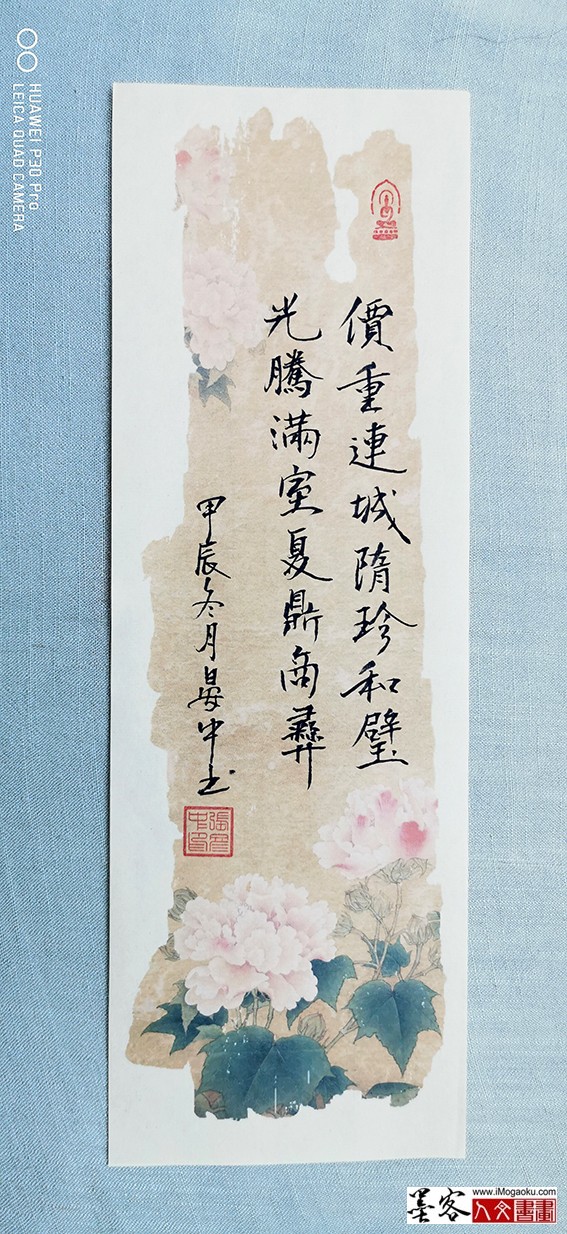 價重連城隋珍和璧
光騰滿室夏鼎商彝
甲辰冬月晏中书
HUAWEI P30 Pro
LEICA QUAD CAMERA
www.iMogaoku.com
墨客
人文書畫